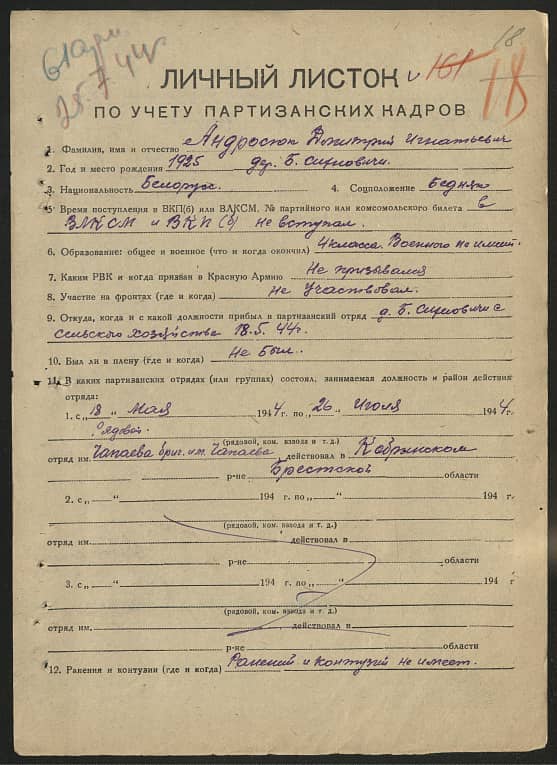 18
25.7.44
ЛИЧНЫЙ ЛИСТОК
и 161
18
ПО УЧЕТУ ПАРТИЗАНСКИХ КАДРОВ
1. Фамилия, имя и отчество Андросюк Дмитрий Игнатьевич
2. Год и место рождения 1925 дер. Б. Сирковичи.
3. Национальность Белорус. 4. Соцположение Бедняк
5. Время поступления в ВКП(б) или ВЛКСМ. № партийного или комсомольского билета в
ВЛКСМ и ВКП(б) не вступал.
6. Образование: общее и военное (что и когда окончил) 4 класса. Военного не имеет.
7. Каким РВК и когда призван в Красную Армию Не призывался
8. Участие на фронтах (где и когда) Не участвовал.
9. Откуда, когда и с какой должности прибыл в партизанский отряд д. Б. Сирковичи с
сельского хозяйства 18.5.44г.
10. Был ли в плену (где и когда) Не был.
11. В каких партизанских отрядах (или группах) состоял, занимаемая должность и район действия
отряда:
1. с „18„ Мая 1944 г. по „26„ Июля 1944 г.
Рядовой.
(рядовой, ком. взвода и т. д.)
отряд им. Чапаева бриг. им. Чапаева действовал в Кобринском
р-не Брестской области
2. с „ “ 194 г. по „ “ 194 г.
(рядовой, ком. взвода и т. д.)
отряд им. действовал в
р-не области
3. с „ “ 194 г. по „ “ 194 г
(рядовой, ком. взвода и т. д.)
отряд им. действовал в
р-не области
12. Ранения и контузии (где и когда) Ранений и контузий не имеет.